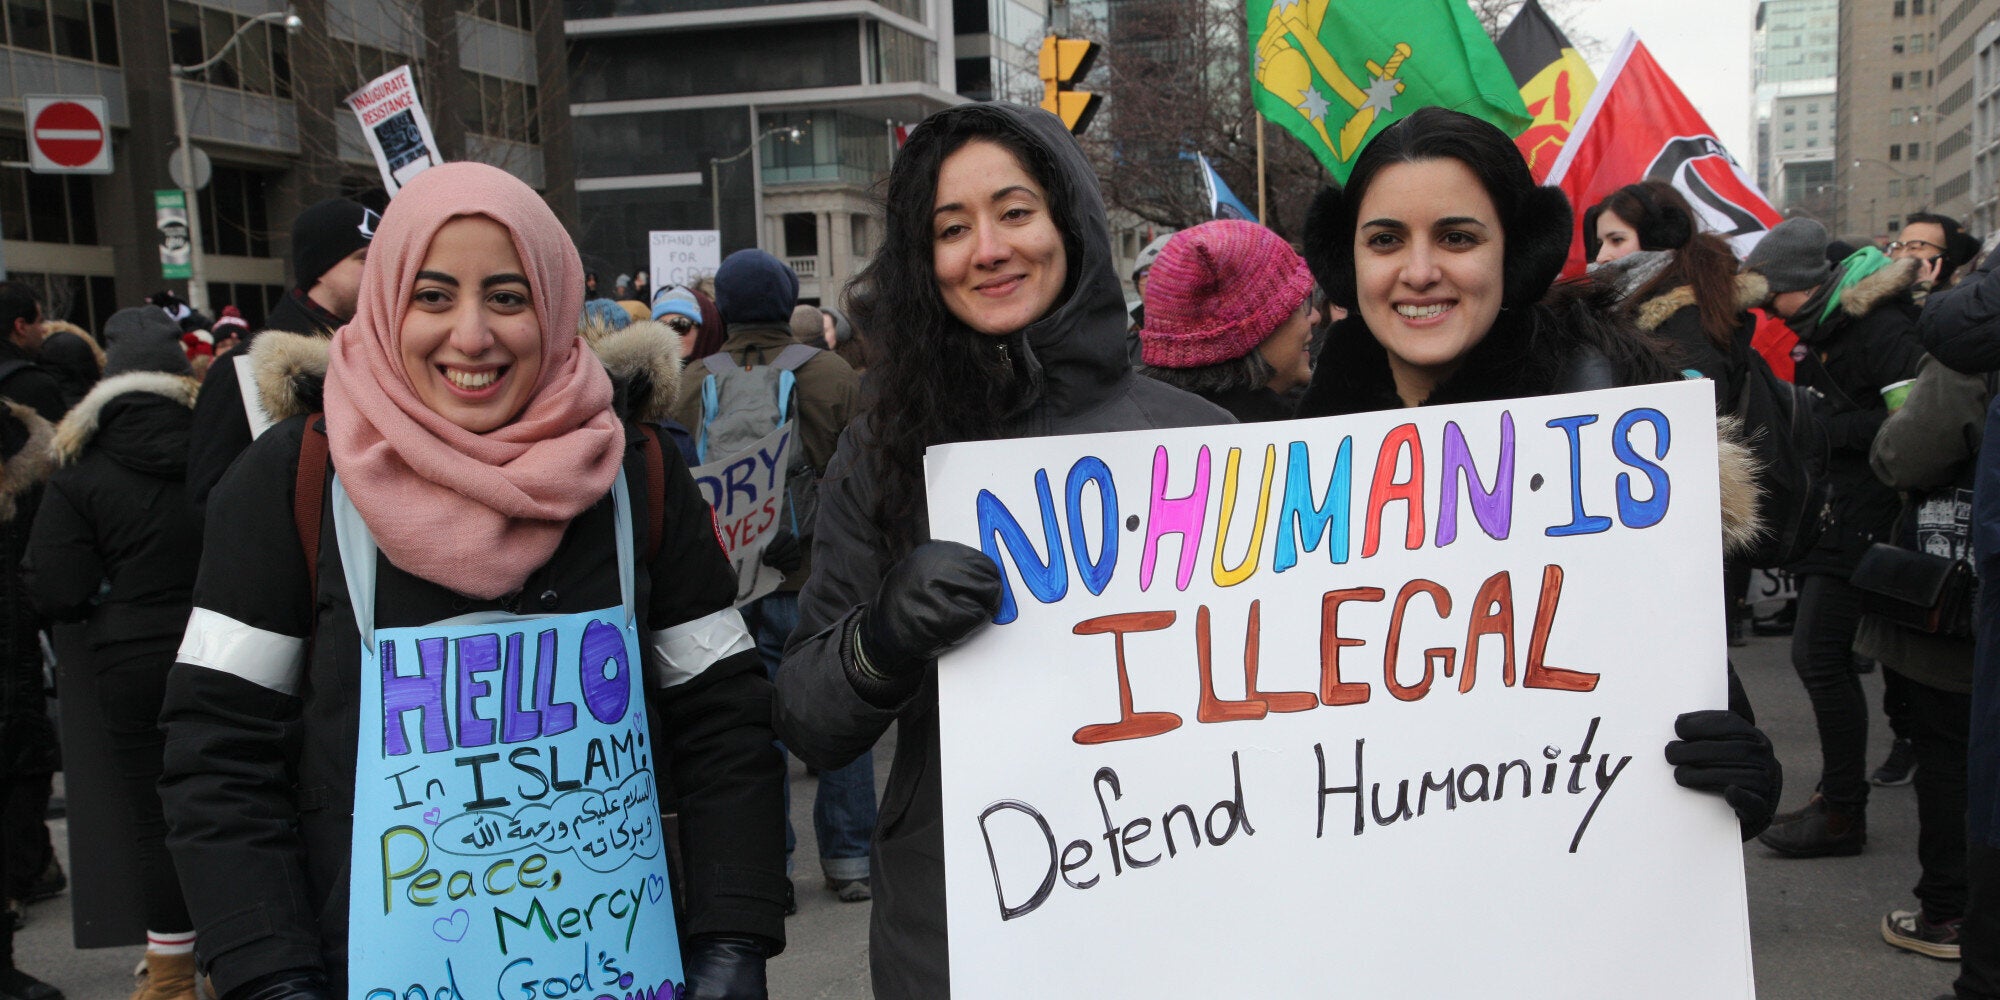 INAUGURATE
RESISTANCE
STAND UP
FOR
LGBT
HELLO
In ISLAM:
السلام عليكم ورحمة الله
وبركاته
Peace,
Mercy
and God's
NO·HUMAN·IS
ILLEGAL
Defend Humanity